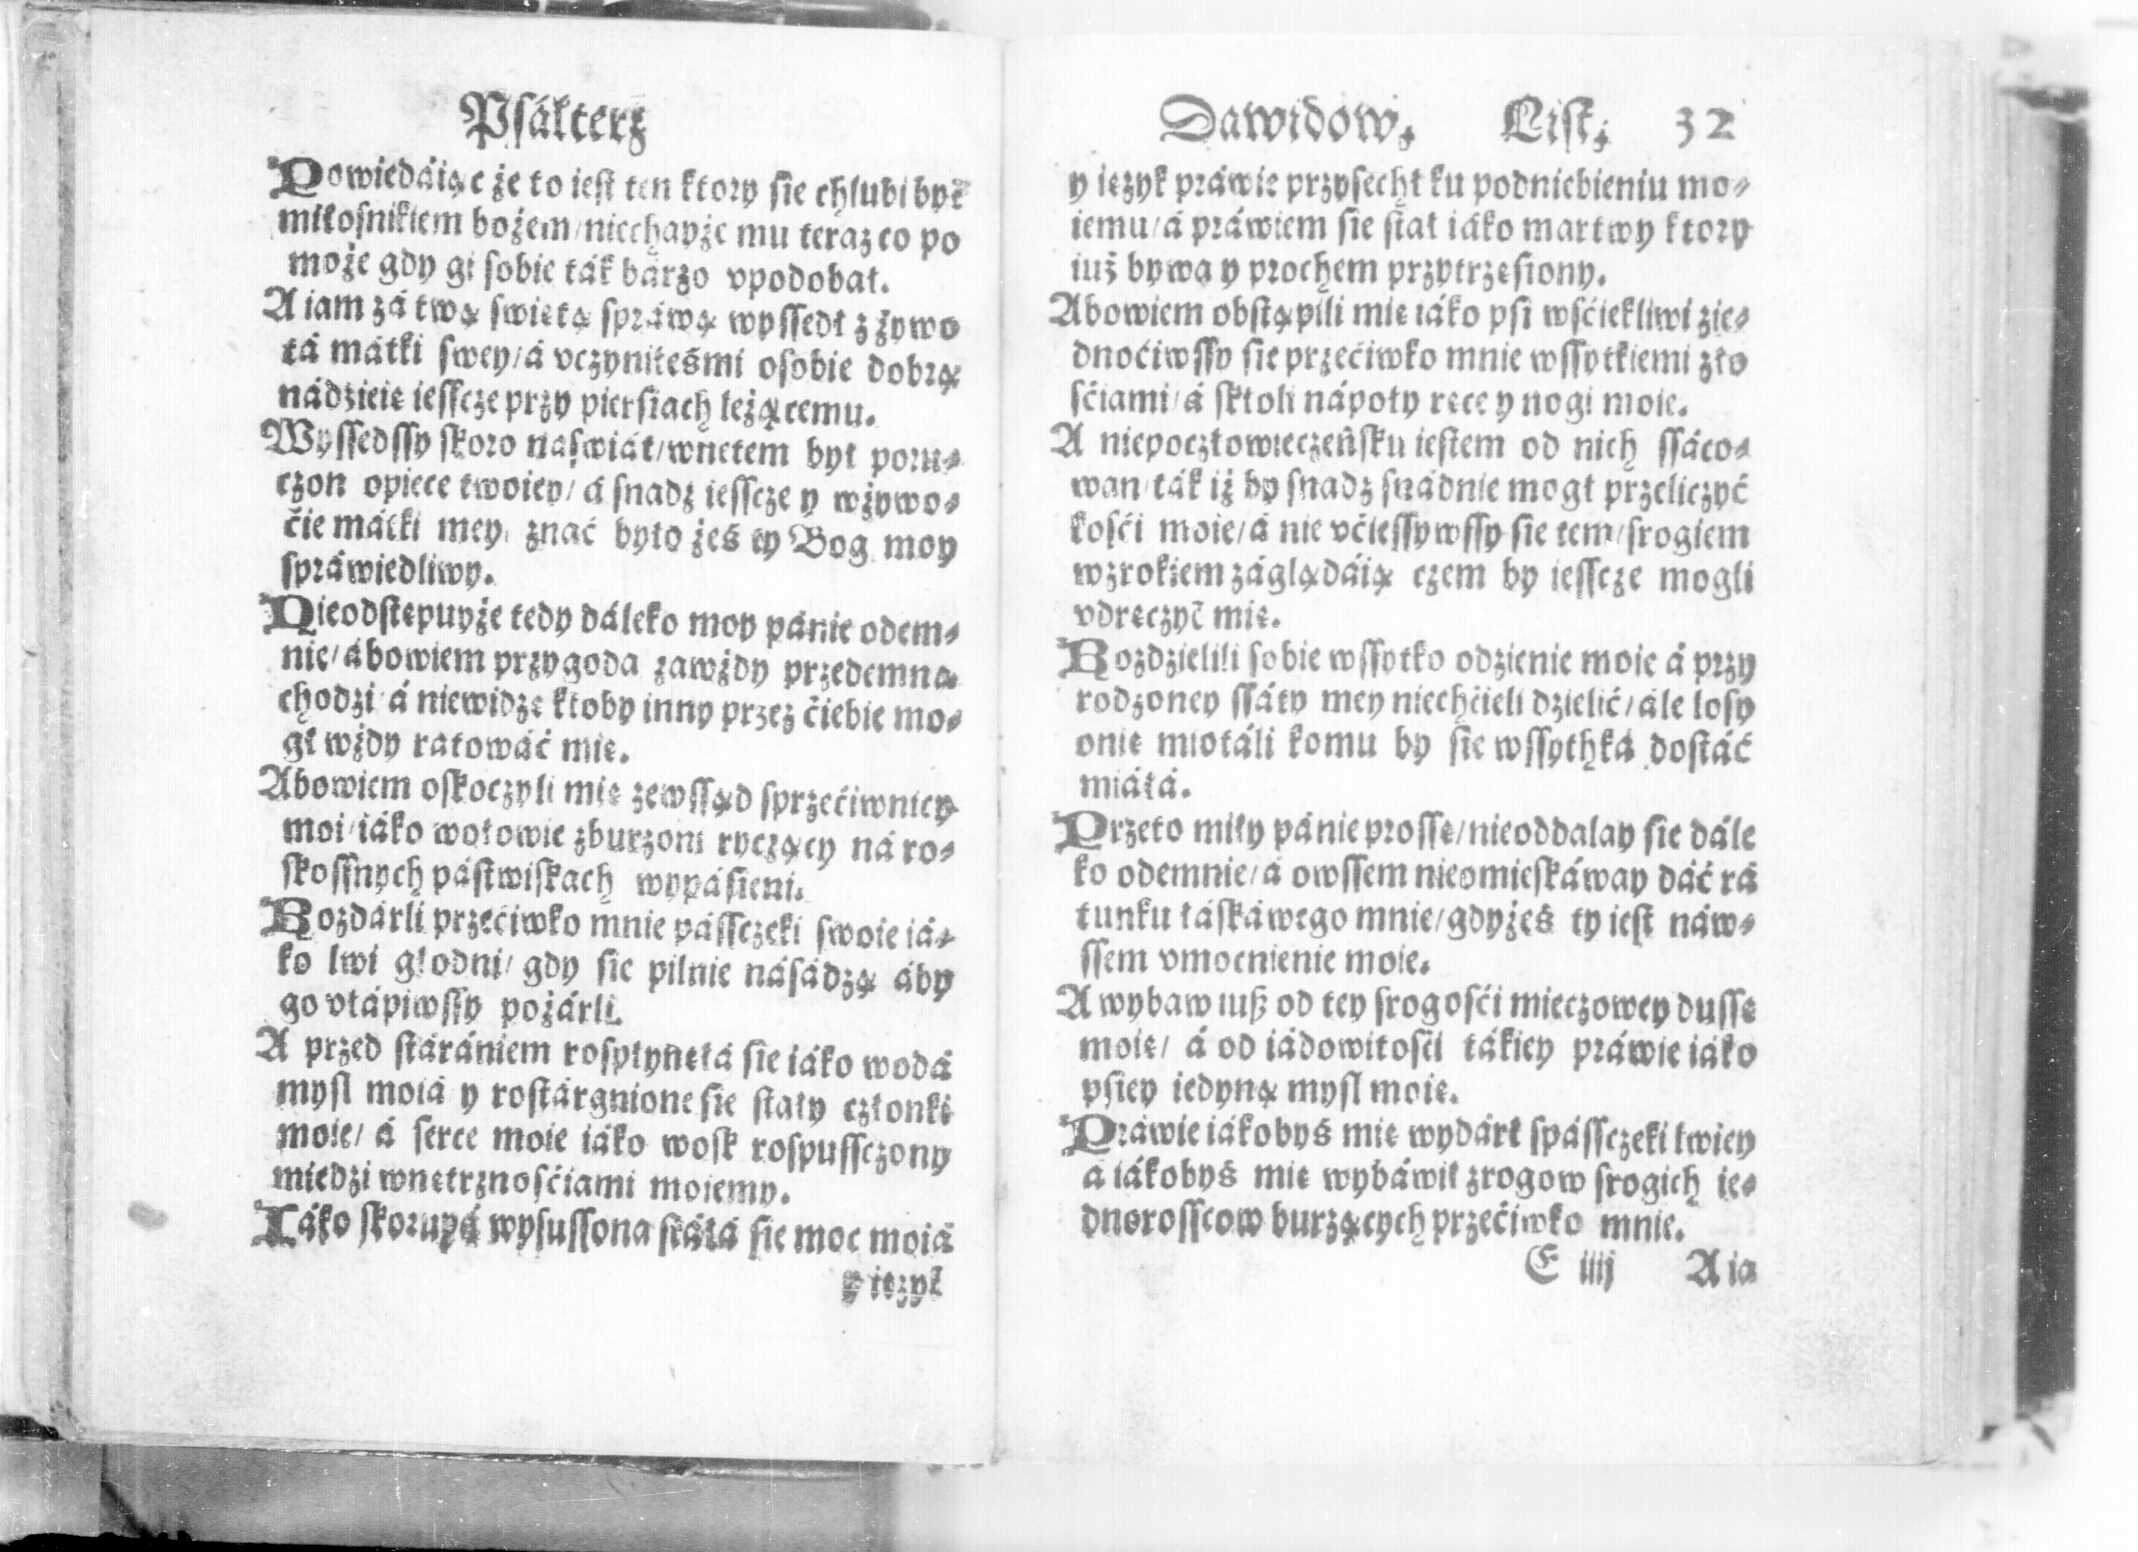 Psálterz
Powiedáiąc że to iest ten ktory sie chlubi być
miłosnikiem bożem/niechayże mu teraz co po
może gdy gi sobie ták bárzo vpodobał.
A iam zá twą swiętą spráwą wyssedł z żywo
tá mátki swey/á vczyniłeśmi osobie dobrą
nádzieię iesscze przy piersiach leżącemu.
Wyssedssy skoro náświát/wnetem był poru⸗
czon opiece twoiey/á snadz iesscze y wżywo⸗
ćie mátki mey/ znáć było żeś ty Bog moy
spráwiedliwy.
Nieodstępuyże tedy dáleko moy pánie odem⸗
nie/ábowiem przygoda záwżdy przedemną
chodzi/á niewidzę ktoby inny przez ćiebie mo⸗
gł wżdy rátowáć mię.
Abowiem oskoczyli mię zewssąd sprzećiwnicy
moi/iáko wołowie zburzoni ryczący ná ro⸗
skossnych pástwiskach wypásieni.
Rozdárli przećiwko mnie pássczeki swoie iá⸗
ko lwi głodni/ gdy sie pilnie násádzą áby
go vłápiwssy pożárli.
A przed stárániem rospłynęłá sie iáko wodá
mysl moiá y rostárgnione sie stáły członki
moie/ á serce moie iáko wosk rospussczony
miedzi wnętrznosćiami moiemy.
Iáko skorupá wysussona stáłá sie moc moiá
y ięzyk
Dawidow. List. 32
y ięzyk práwie przysechł ku podniebieniu mo⸗
iemu/á práwiem sie stał iáko martwy ktory
iuż bywa y prochem przytrzęsiony.
Abowiem obstąpili mię iáko psi wsćiekliwi zie⸗
dnoćiwssy sie przećiwko mnie wssytkiemi zło
sćiami/á skłoli nápoły ręce y nogi moie.
A niepoczłowieczeńsku iestem od nich ssáco⸗
wan/ták iż by snadz snádnie mogł przeliczyć
kosći moie/á nie vćiessywssy sie tem/srogiem
wzrokiem záglądáią czem by iesscze mogli
vdręczyć mię.
Rozdzielili sobie wssytko odzienie moie á przy
rodzoney ssáty mey niechćieli dzielić/ále losy
onię miotáli komu by sie wssythká dostáć
miáłá.
Przeto miły pánie prossę/nieoddalay sie dále
ko odemnie/á owssem nieomieskáway dáć rá
tunku łáskáwego mnie/gdyżeś ty iest náw⸗
ssem vmocnienie moie.
A wybaw iuß od tey srogosći mieczowey dussę
moię/ á od iádowitosći tákiey práwie iáko
psiey iedyną mysl moię.
Práwie iákobyś mię wydárł spássczeki lwiey
a iákobyś mię wybáwił zrogow srogich ie⸗
dnorosscow burzących przećiwko mnie.
E iiij A ia